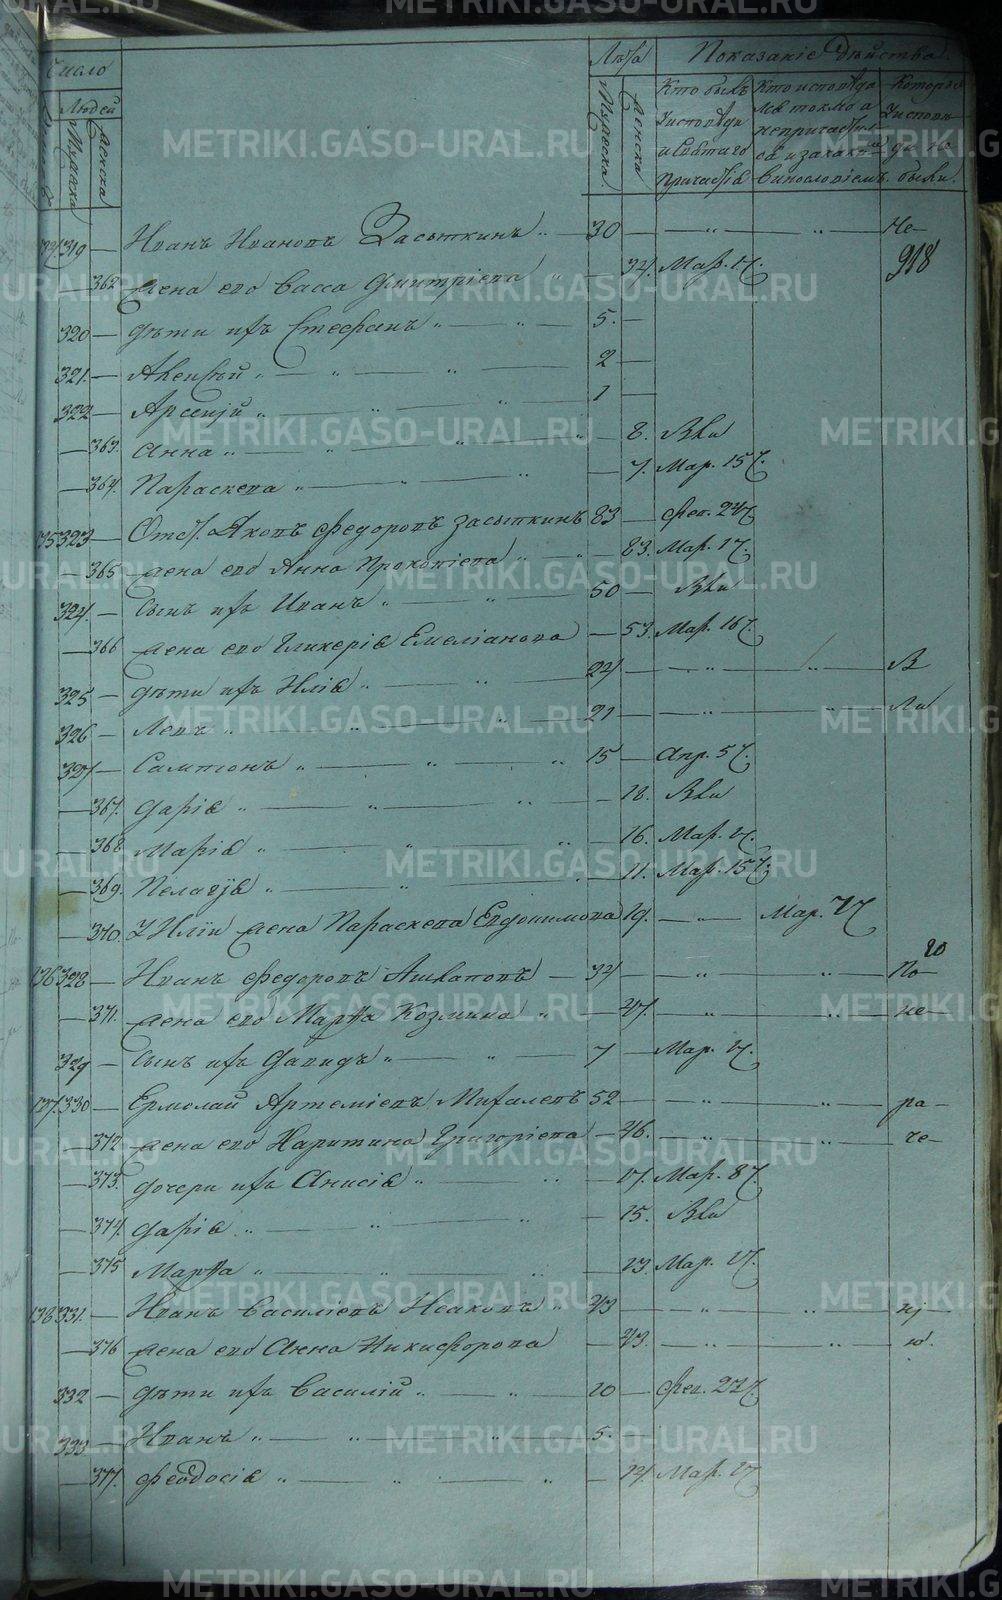 Число
Людей
Мужеска
Женска
Лѣта
Мужеска.
Женска
Показанiе дѣйства.
Кто былъ
у исповѣди
и Святаго
Причастiя
Кто исповѣда
лся токмо а
не причастил
ся и за какимъ
винословiемъ.
Которые
у исповѣ
ди не
были.
319 — Иванъ Ивановъ Засыпкинъ „ — 30 — — „ — „ — Не—
918
— 362 жена его Васса Димитрiева „ — 34. Мар. 17.
320 — дѣти ихъ Стефанъ „ — „ — 5. —
321. — Алексѣй „ — „ — „ 2 —
322 — Арсенiй „ — „ — „ 1 —
— 363. Анна „ — „ — „ — 8. Вли
— 364. Параскева „ — „ — „ — 7. Мар. 15
323 — Отст. Яковъ Федоровъ Засыпкинъ 83 — Фев. 24
— 365 жена его Анна Прокопiева „ — 83. Мар. 17
324. — сынъ ихъ Иванъ „ — „ — 50 — Вли
— 366 жена его Гликерiя Емелiанова — 53. Мар. 16
325 — дѣти ихъ Илiя „ — „ — 24 — — „ — „ — В
326 — Левъ „ — „ — 21 — — „ — „ — Ли
327 — Сампсонъ „ — „ — „ 15 — Апр. 5
— 367. Дарiя „ — „ — „ — 18. Вли
— 368 Марiя „ — „ — „ — 16. Мар.
— 369. Пелагiя „ — „ — „ — 11. Мар. 15
— 370. У Илiи жена Параскева Евдокимова 19. — „ — Мар.
136 328 — Иванъ Федоровъ — 34 — „ — „ — По—
20
— 371. жена его Марѳа Козмина „ — — „ — „ — не—
329 — сынъ ихъ Давидъ „ — „ — 7 — Мар.
137 330 — Ермолай Артемiевъ Михалевъ 52 — — „ — „ — ра—
— 372 жена его Харитина Григорiева — 46. — „ — „ — че—
— 373. дочери ихъ Анисiя „ — „ — 17. Мар. 8
— 374. Дарiя „ — „ — „ — 15. Вли
— 375 Марѳа „ — „ — „ — 13. Мар.
138 331. — Иванъ Василiевъ Исаковъ „ 43 — — „ — „ — нi—
— 376 жена его Анна Никифорова — 43. — „ — „ — ю.
332 — дѣти ихъ Василiй „ — „ — 10 — Фев. 22
333 — Иванъ „ — „ — „ 5. —
— 377. Феодосiя „ — „ — „ — 14. Мар.
METRIKI.GASO-URAL.RU